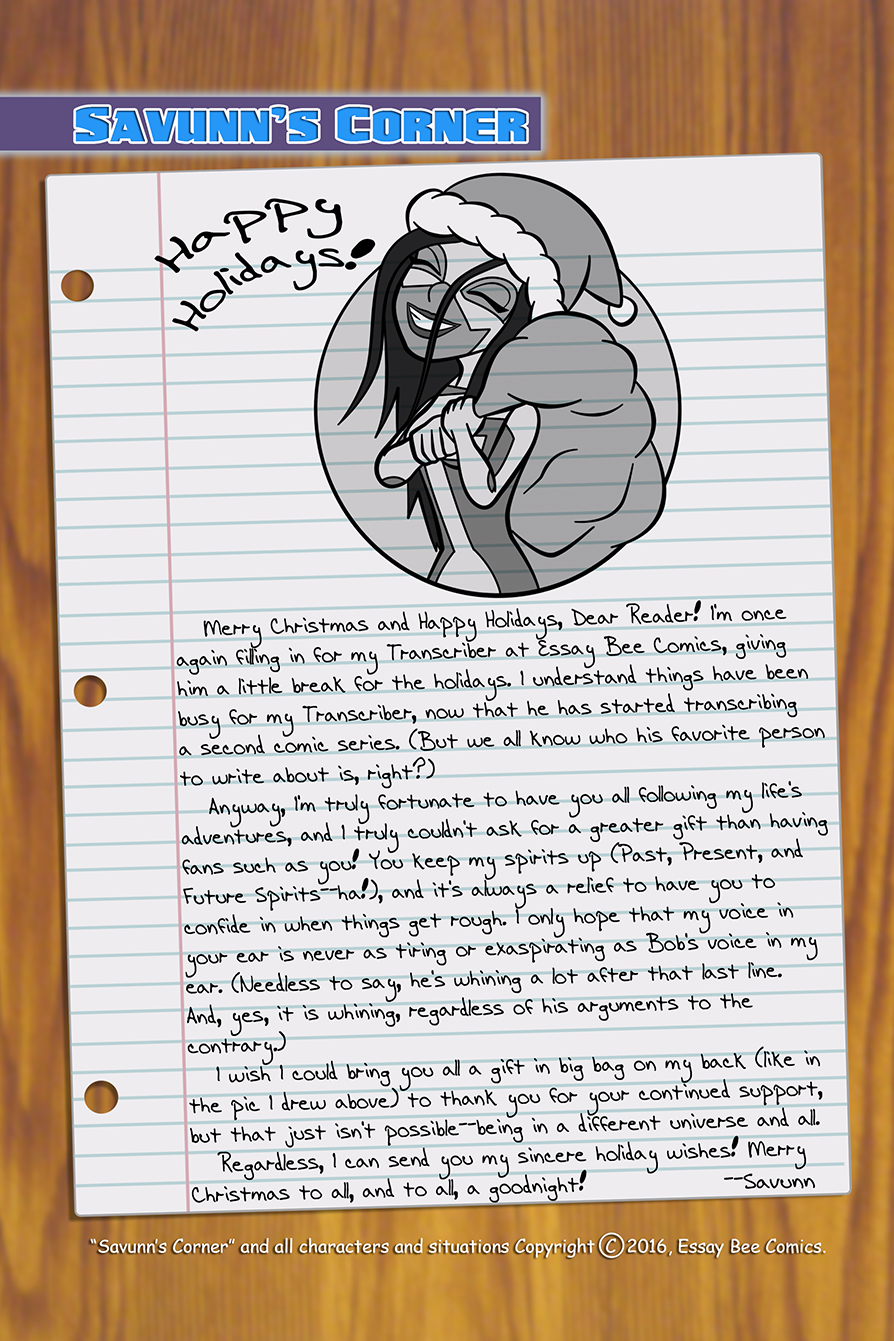 SAVUNN'S CORNER
Happy
Holidays!
Merry Christmas and Happy Holidays, Dear Reader! I'm once
again filling in for my Transcriber at Essay Bee Comics, giving
him a little break for the holidays. I understand things have been
busy for my Transcriber, now that he has started transcribing
a second comic series. (But we all know who his favorite person
to write about is, right?)
Anyway, I'm truly fortunate to have you all following my life's
adventures, and I truly couldn't ask for a greater gift than having
fans such as you! You keep my spirits up (Past, Present, and
Future Spirits--ha!), and it's always a relief to have you to
confide in when things get rough. I only hope that my voice in
your ear is never as tiring or exaspirating as Bob's voice in my
ear. (Needless to say, he's whining a lot after that last line.
And, yes, it is whining, regardless of his arguments to the
contrary.)
I wish I could bring you all a gift in big bag on my back (like in
the pic I drew above) to thank you for your continued support,
but that just isn't possible--being in a different universe and all.
Regardless, I can send you my sincere holiday wishes! Merry
Christmas to all, and to all, a goodnight! --Savunn
"Savunn's Corner" and all characters and situations Copyright © 2016, Essay Bee Comics.